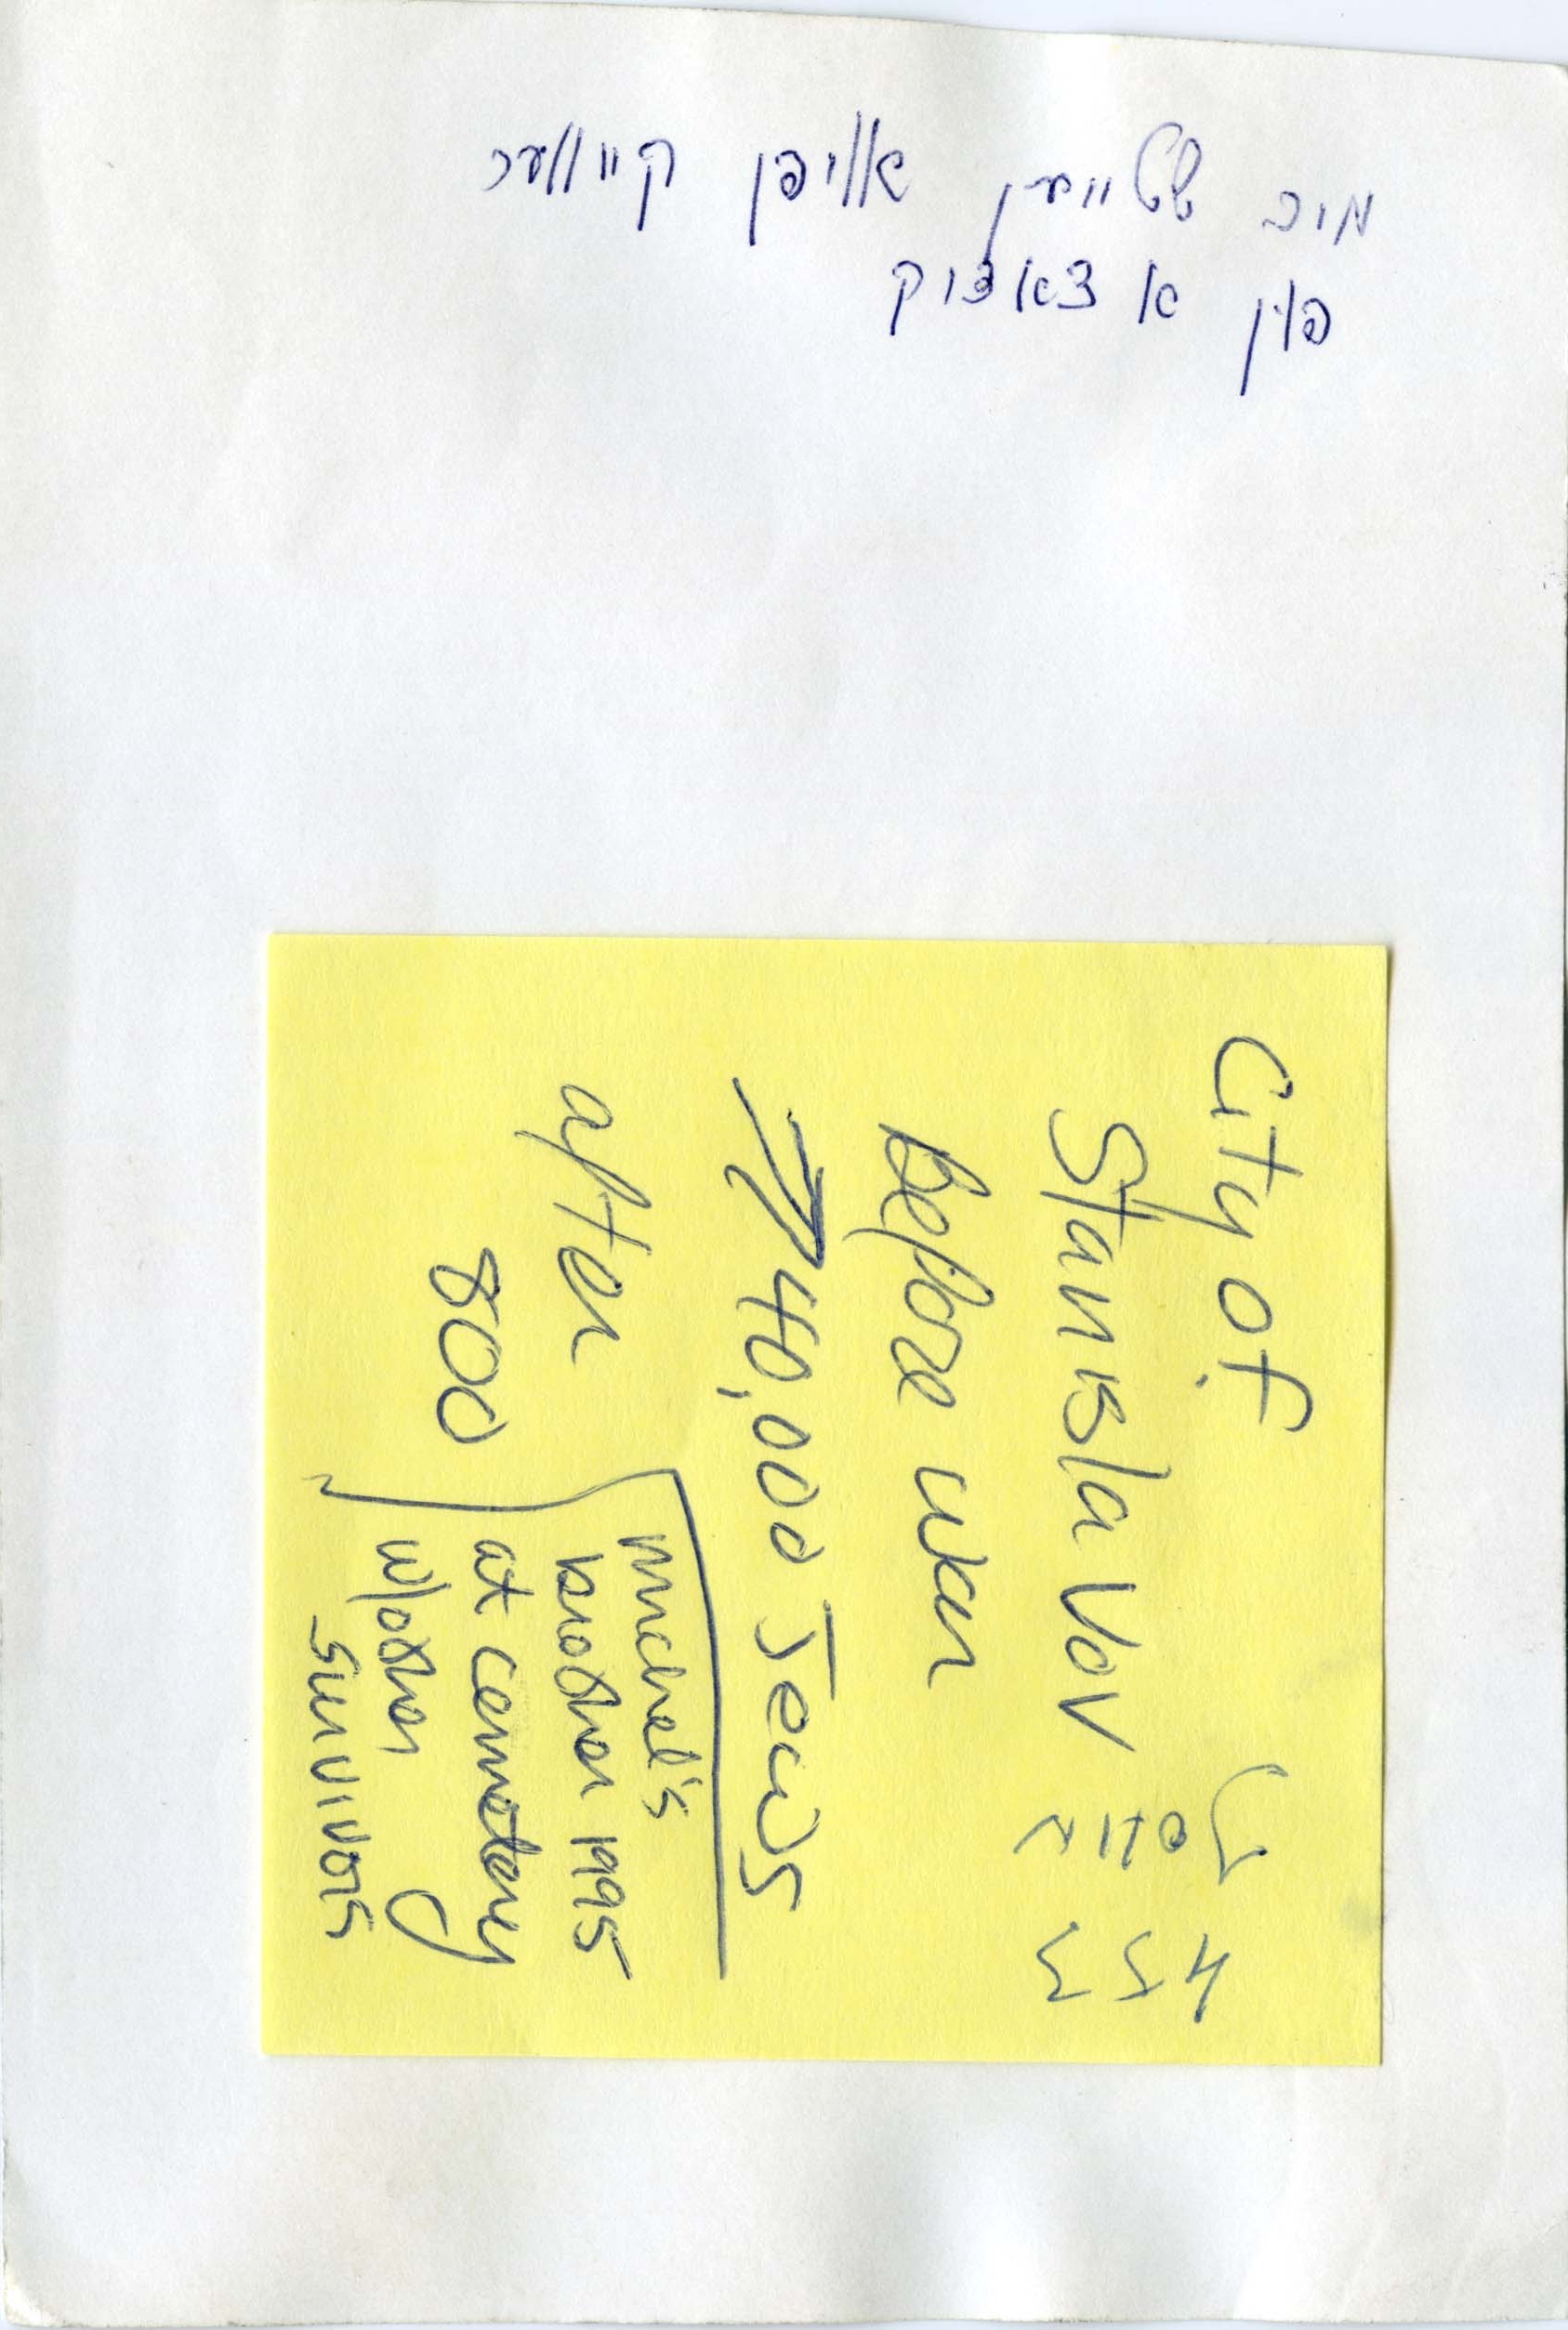 מיר שטייען אויפן קייווער
פון א צאדיק
City of
Stanislavov
Before war
40,000 Jews
after
800
michel's
brother 1995
at cemetery
w/other
survivors